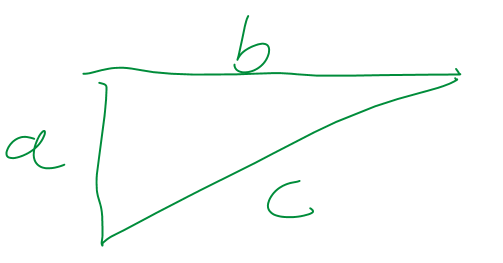 b
a
c